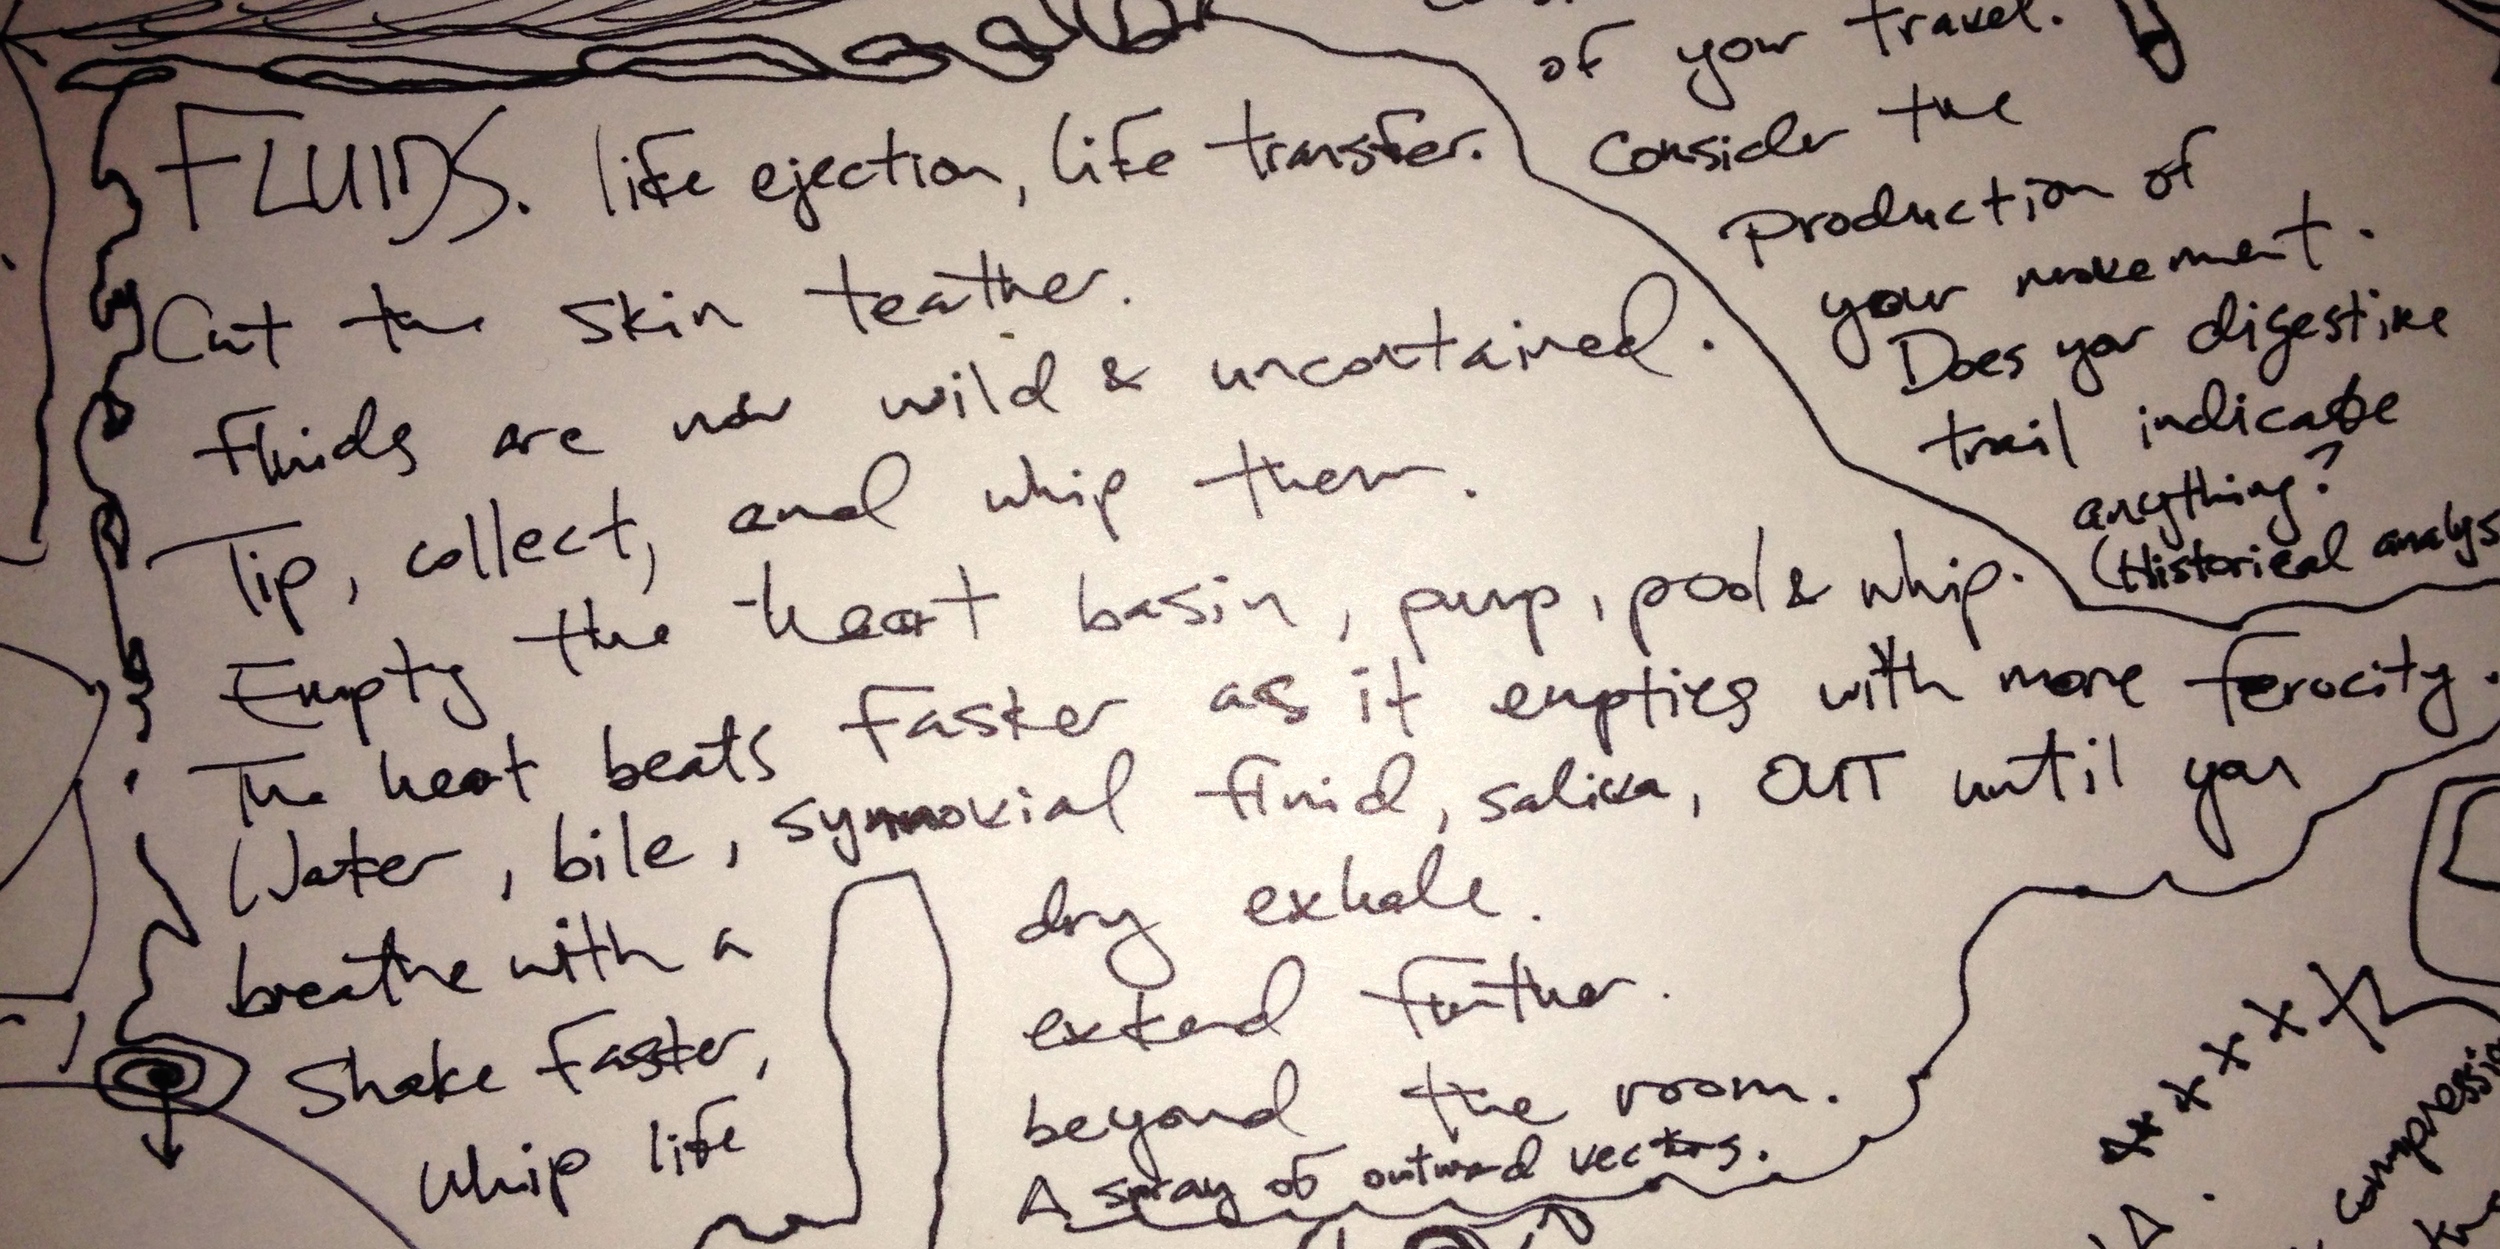 FLUIDS. life ejection, life transfer.
Cut the skin teather.
Fluids are now wild & uncontained.
Tip, collect, and whip them.
Empty the heart basin, pump, pool & whip.
The heart beats faster as it empties with more ferocity.
Water, bile, synnovial fluid, saliva, OUT until you
breathe with a
dry exhale.
Shake faster,
whip life
extend further.
beyond the room.
A spray of outward vectors.
of your travel.
Consider the
production of
your movement.
Does your digestive
trail indicate
anything?
(Historical analys
x x x x X
compressio